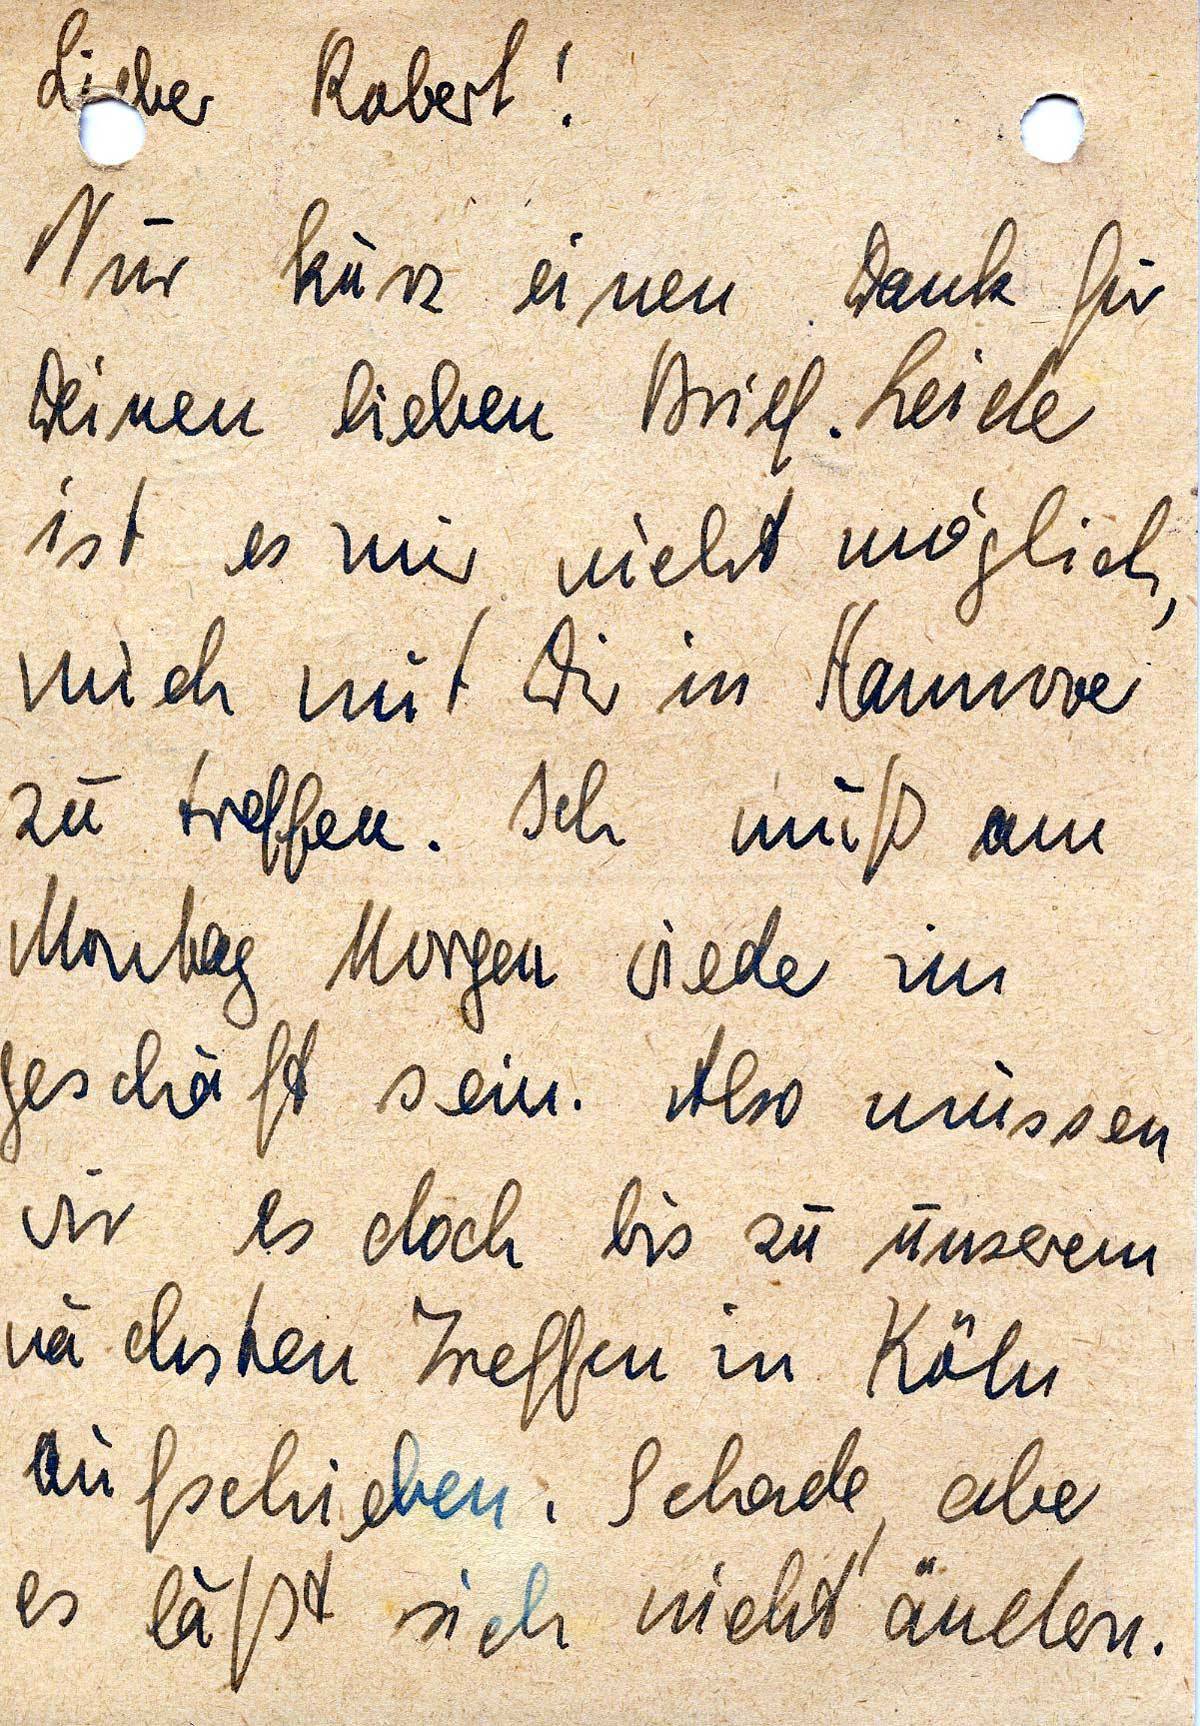 Lieber Robert!
Nur kurz einen Dank für
Deinen lieben Brief. Leider
ist es mir nicht möglich,
mich mit Dir in Hannover
zu treffen. Ich muß am
Montag Morgen wieder im
Geschäft sein. Also müssen
wir es doch bis zu unserem
nächsten Treffen in Köln
aufschieben. Schade, aber
es läßt sich nicht ändern.